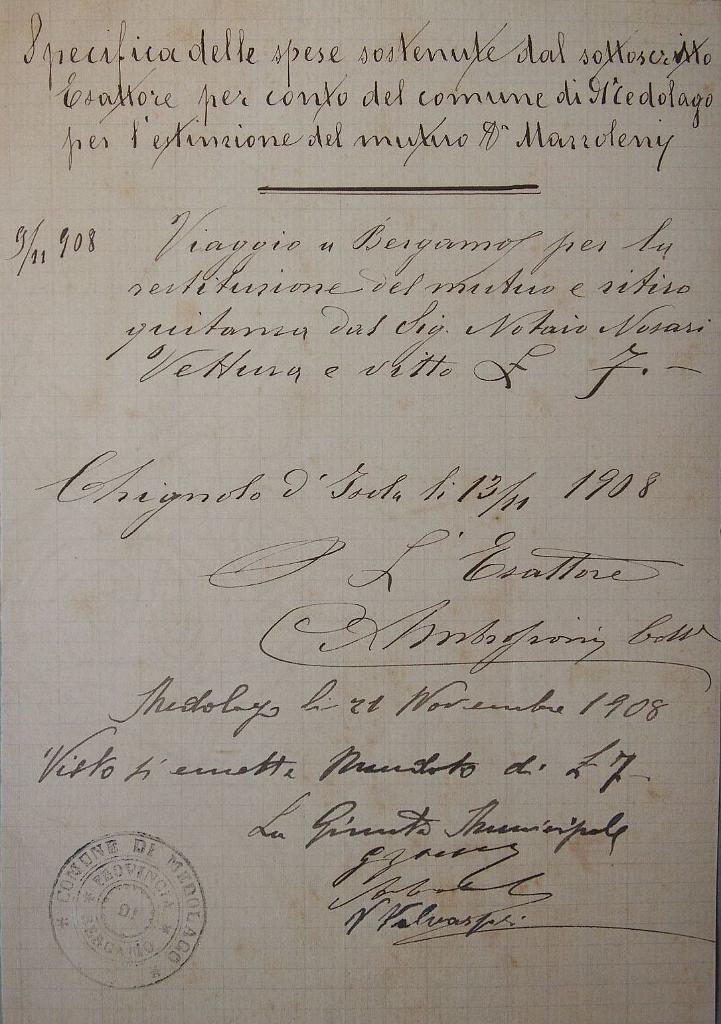 Specifica delle spese sostenute dal sottoscritto
Esattore per conto del comune di Medolago
per l'estinzione del mutuo Dr Mazzoleni
9/11 908 Viaggio a Bergamo per la
restituzione del mutuo e ritiro
quitanza dal Sig. Notaio Nosari
Vettura e vitto £ 7.-
Chignolo d'Isola li 13/11 1908
L'Esattore
Ambrosioni
Medolago li 21 Novembre 1908
Visto si emette Mandato di £ 7-
La Giunta Municipale
COMUNE DI MEDOLAGO
PROVINCIA
DI
BERGAMO